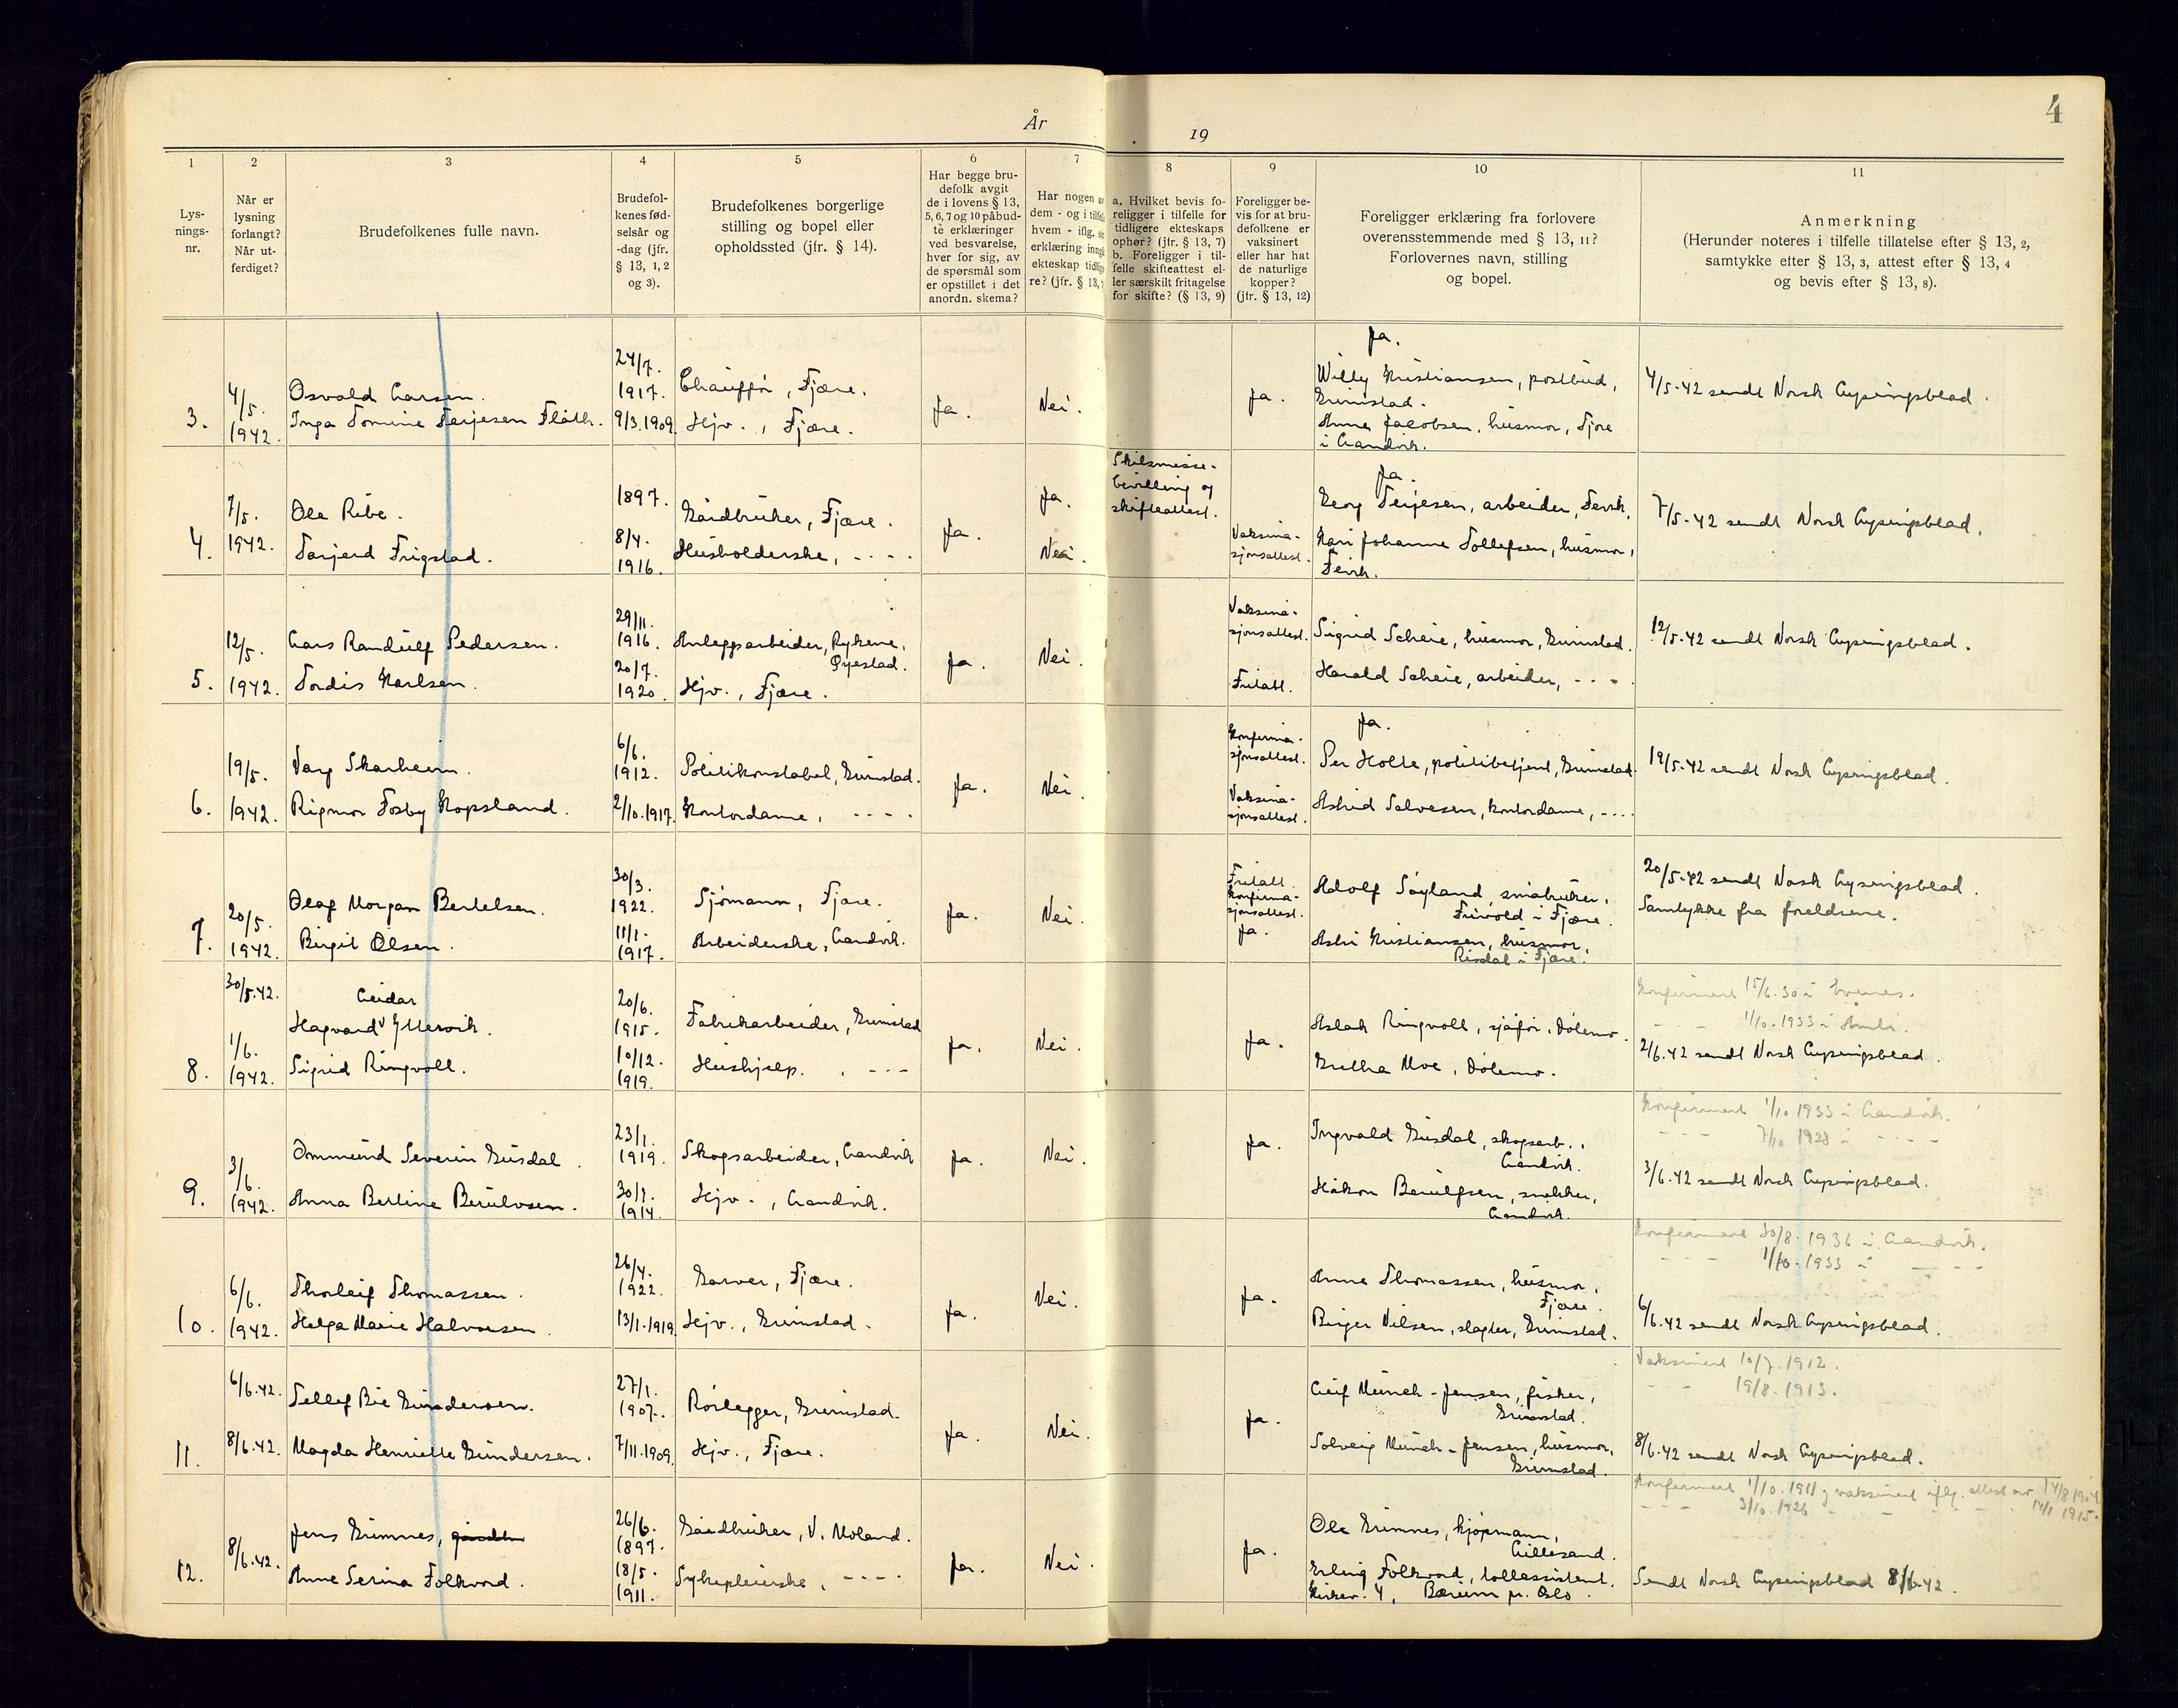 År
19
4
1
2
3
4
5
6
7
8
9
10
11
Lys-
nings-
nr.
Når er
lysning
forlangt?
Når ut-
ferdiget?
Brudefolkenes fulle navn.
Brudefol-
kenes fød-
selsår og
-dag (jfr.
§ 13, 1, 2
og 3).
Brudefolkenes borgerlige
stilling og bopel eller
opholdssted (jfr. § 14).
Har begge bru-
defolk avgit
de i lovens § 13,
5, 6, 7 og 10 påbud-
te erklæringer
ved besvarelse,
hver for sig, av
de spørsmål som
er opstillet i det
anordn. skema?
Har nogen
dem - og i
hvem - iflg.
erklæring
ekteskap
re? (jfr. § 13,
a. Hvilket bevis fo-
religger i tilfelle for
tidligere ekteskaps
ophør? (jfr. § 13, 7)
b. Foreligger i til-
felle skifteattest el-
ler særskilt fritagelse
for skifte? (§ 13, 9)
Foreligger be-
vis for at bru-
defolkene er
vaksinert
eller har hat
de naturlige
kopper?
(jfr. § 13, 12)
Foreligger erklæring fra forlovere
overensstemmende med § 13, 11?
Forlovernes navn, stilling
og bopel.
Anmerkning
(Herunder noteres i tilfelle tillatelse efter § 13, 2,
samtykke efter § 13, 3, attest efter § 13, 4
og bevis efter § 13, 8).
3.
4/5.
1942.
Osvald Larsen.
Inga Tomine Terjesen Flåth.
24/7.
1917.
9/3.1909.
Chauffør, Fjære.
Hjv., Fjære.
Ja.
Nei.
Ja.
Ja.
Willy Kristiansen, postbud,
Grimstad.
Anna Jacobsen, husmor, Fjore
i Landvik.
4/5-42 sendt Norsk Lysingsblad.
4.
7/5.
1942.
Ole Ribe.
Tarjerd Frigstad.
1897.
8/4.
1916.
Gårdbruker, Fjære.
Husholderske, - - - -
Ja.
Ja.
Nei.
Skilsmisse-
bevilling og
skifteattest.
Vaksina-
sjonsattest.
Ja.
Georg Terjesen, arbeider, Fevik.
Kari Johanne Tollefsen, husmor,
Fevik.
7/5-42 sendt Norsk Lysingsblad.
5.
12/5.
1942.
Lars Randulf Pedersen.
Tordis Karlsen.
29/11.
1916.
20/7.
1920.
Anleggsarbeider, Rykene,
Øyestad.
Hjv., Fjære.
Ja.
Nei.
Vaksina-
sjonsattest.
Fritatt.
Sigrid Scheie, husmor, Grimstad.
Harald Scheie, arbeider, - - -
12/5-42 sendt Norsk Lysingsblad.
6.
19/5.
1942.
Varg Skarheim.
Rigmor Fosby Kopsland.
6/6.
1912.
2/10.1917.
Politikonstabel, Grimstad.
Kontordame, - - - -
Ja.
Nei.
Konfirma-
sjonsattest.
Vaksina-
sjonsattest.
Ja.
Per Holte, politibetjent, Grimstad.
Astrid Salvesen, kontordame, - - - -
19/5-42 sendt Norsk Lysingsblad.
7.
20/5.
1942.
Olaf Morgan Bertelsen.
Birgit Olsen.
30/3.
1922.
11/1.
1917.
Sjømann, Fjære.
Arbeiderske, Landvik.
Ja.
Nei.
Fritatt.
Konfirma-
sjonsattest.
Ja.
Adolf Søyland, småbruker,
Frivold i Fjære.
Astri Kristiansen, husmor,
Risdal i Fjære.
20/5-42 sendt Norsk Lysingsblad.
Samtykke fra foreldrene.
8.
30/5.42.
1/6.
1942.
Leidar
Hagvard Yttervik.
Sigrid Ringvoll.
20/6.
1915.
10/12.
1919.
Fabrikarbeider, Grimstad
Hushjelp. - - -
Ja.
Nei.
Ja.
Aslak Ringvoll, sjåfør, Dølemo.
Gretha Moe, Dølemo.
Konfirmert 15/6.30 i
- - 1/10.1933 i Åmli.
2/6.42 sendt Norsk Lysingsblad.
9.
3/6.
1942.
Ommund Severin Gusdal.
Anna Bertine Berulvsen.
23/1.
1919.
30/7.
1914.
Skogsarbeider, Landvik
Hjv., Landvik.
Ja.
Nei.
Ja.
Ingvald Gusdal, skogsarb.,
Landvik.
Håkon Berulfsen, snekker,
Landvik.
Konfirmert 1/10.1933 i Landvik.
- - - 7/10.1928 i - - - -
3/6.42 sendt Norsk Lysingsblad.
10.
6/6.
1942.
Thorleif Thomassen.
Helga Marie Halvorsen.
26/4.
1922.
13/1.1919.
Garver, Fjære.
Hjv., Grimstad.
Ja.
Nei.
Ja.
Anna Thomassen, husmor,
Fjære.
Birger Nilsen, slagter, Grimstad.
Konfirmert 30/8-1936 i Landvik.
- - - 1/10-1933 i - - -
6/6.42 sendt Norsk Lysingsblad.
11.
6/6.42.
8/6.42.
Tellef Bie Gundersen.
Magda Henriette Gundersen.
27/1.
1907.
7/11.1909.
Rørlegger, Grimstad.
Hjv., Fjære.
Ja.
Nei.
Ja.
Leif Münch-Jensen, fisker,
Grimstad.
Solveig Münch-Jensen, husmor,
Grimstad.
Vaksinert 10/7.1912.
- - - 19/8.1913.
8/6.42 sendt Norsk Lysingsblad.
12.
8/6.42.
Jens Grimnes,
Anne Serina Folkvord.
26/6.
1897.
18/5.
1911.
Gårdbruker, V. Moland.
Sykepleierske, - - - -
Ja.
Nei.
Ja.
Ole Grimnes, kjøpmann,
Lillesand.
Erling Folkvord, tollassistent,
Kirkev. 4, Bærum pr. Oslo.
Konfirmert 1/10.1911 og vaksinert iflg. attest av 14/8 1904
- - - 3/10.1926 - - - 14/1 1915.
Sendt Norsk Lysingsblad 8/6-42.